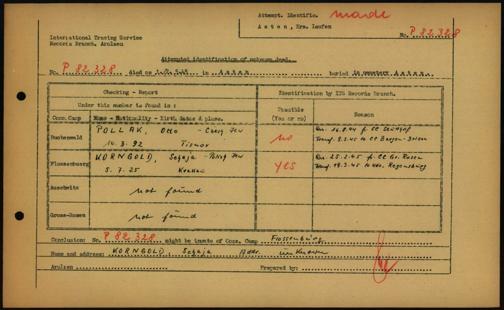 Attempt. Identific. made
Asten, Krs. Laufen
International Tracing Service
Records Branch, Arolsen
No. P 82 328
Attempted identification of unknown dead.
No. P 82.328 died on in Asten buried in cemetery Asten.
Checking - Report
Identification by ITS Records Branch.
Under this number is found in:
Feasible (Yes or no)
Reason:
Conc.Camp Name - Nationality - Birth dates & place.
Buchenwald POLLAK, Otto - Czech Jew
10. 3. 92 Tisnov
no
Rec. 16.8.44 f. CC Stutthof
Transf. 9.2.45 to CC Bergen-Belsen
Flossenburg KORNGOLD, Szhaja - Polish Jew
5. 7. 25 Krakau
yes
Rec. 25.2.45 f. CC Gr. Rosen
Transf. 19.3.45 to Kdo. Regensburg
Auschwitz not found
Gross-Rosen not found
Conclusion: No. P 82.328 might be inmate of Conc. Camp Flossenbürg
Name and address: KORNGOLD, Addr. unknown
Arolsen Prepared by: